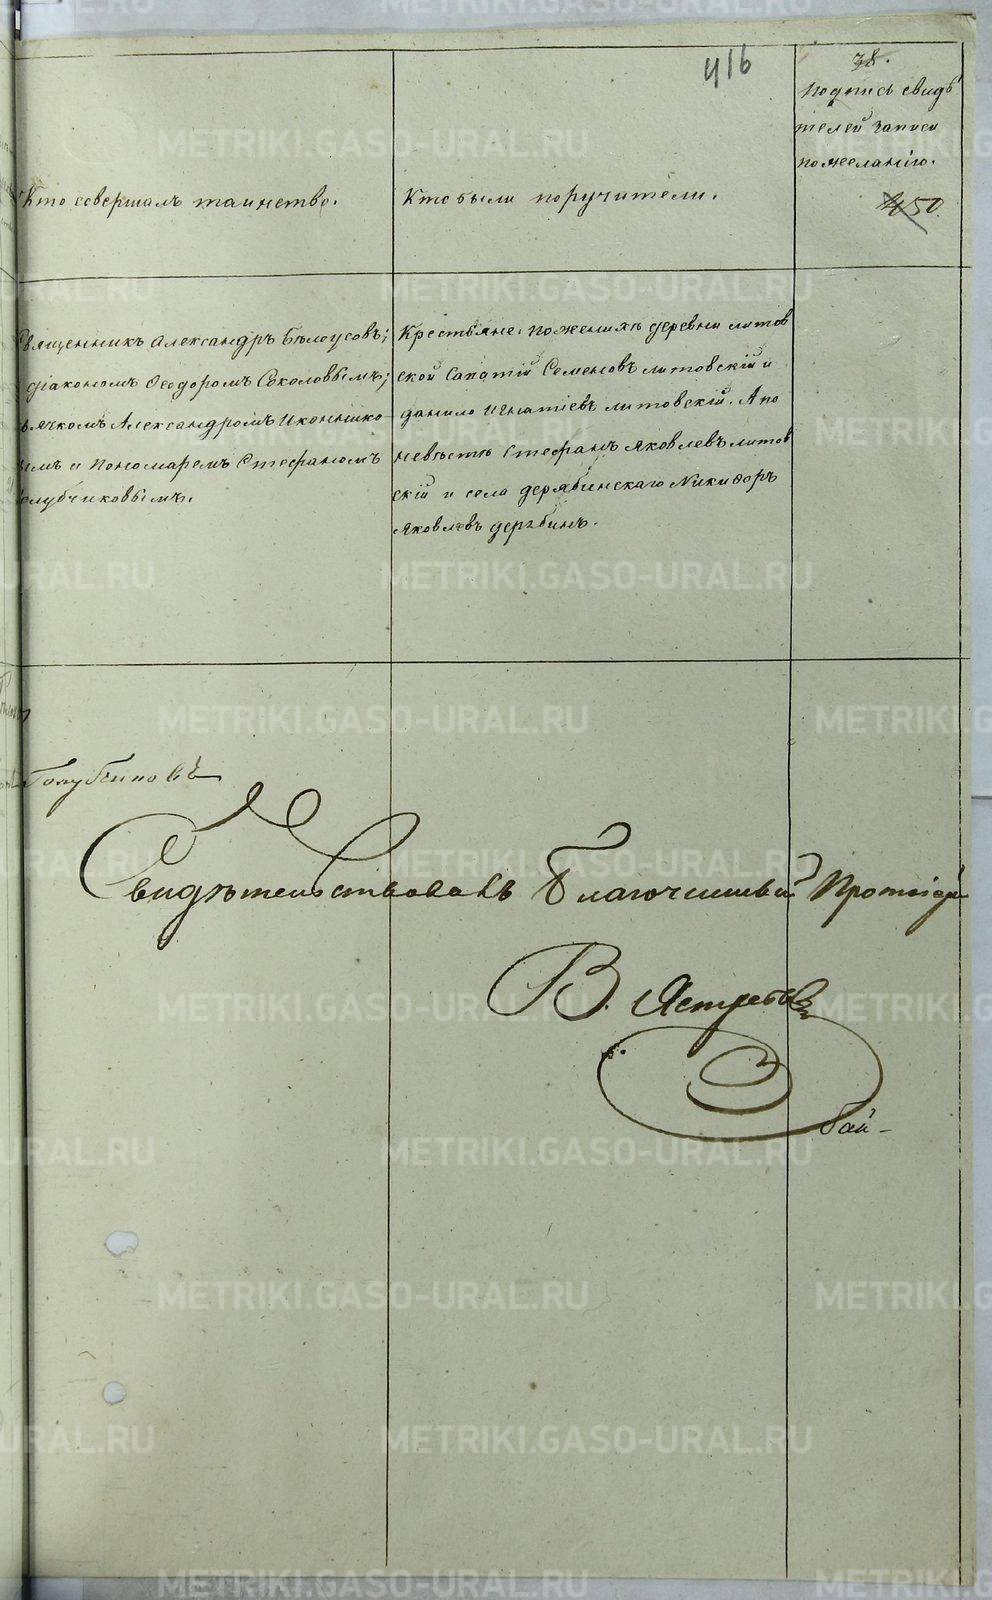 416
38.
Подпись свидѣ
телей записи
по желанію.
450.
Кто совершалъ таинство.
Кто были поручители.
Священникъ Александръ Бѣлоусовъ;
діакономъ Ѳеодоромъ Соколовымъ;
дьячкомъ Александромъ Иконнико
вымъ и пономаремъ Стефаномъ
олубчиковымъ.
Крестьяне: по женихѣ деревни литов
ской Сапатій Семеновъ литовскій и
данило Игнатіевъ литовскій. А по
невѣстѣ Стефанъ Яковлевъ литов
скій и села дерябинскаго Никифоръ
Яковлевъ дерябинъ.
Голубчиковъ
Свидѣтельствовалъ Благочинный Протоіерей
В. Ястребовъ
бай-
METRIKI.GASO-URAL.RU